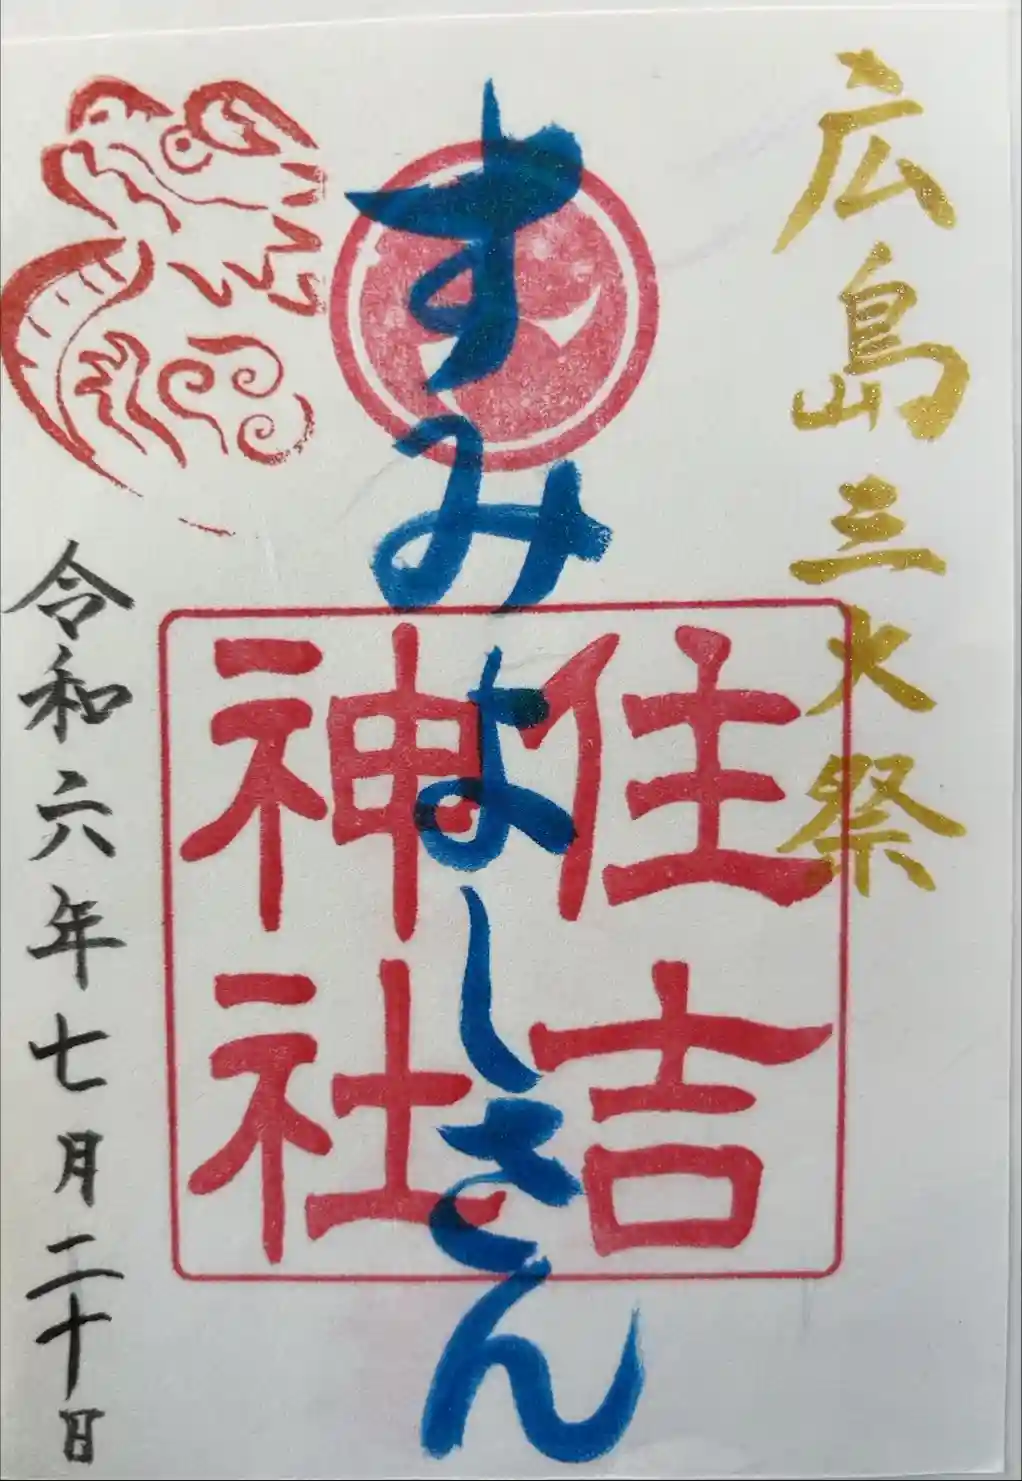 広島三大祭
すみよしさん
住吉
神社
令和六年七月二十日